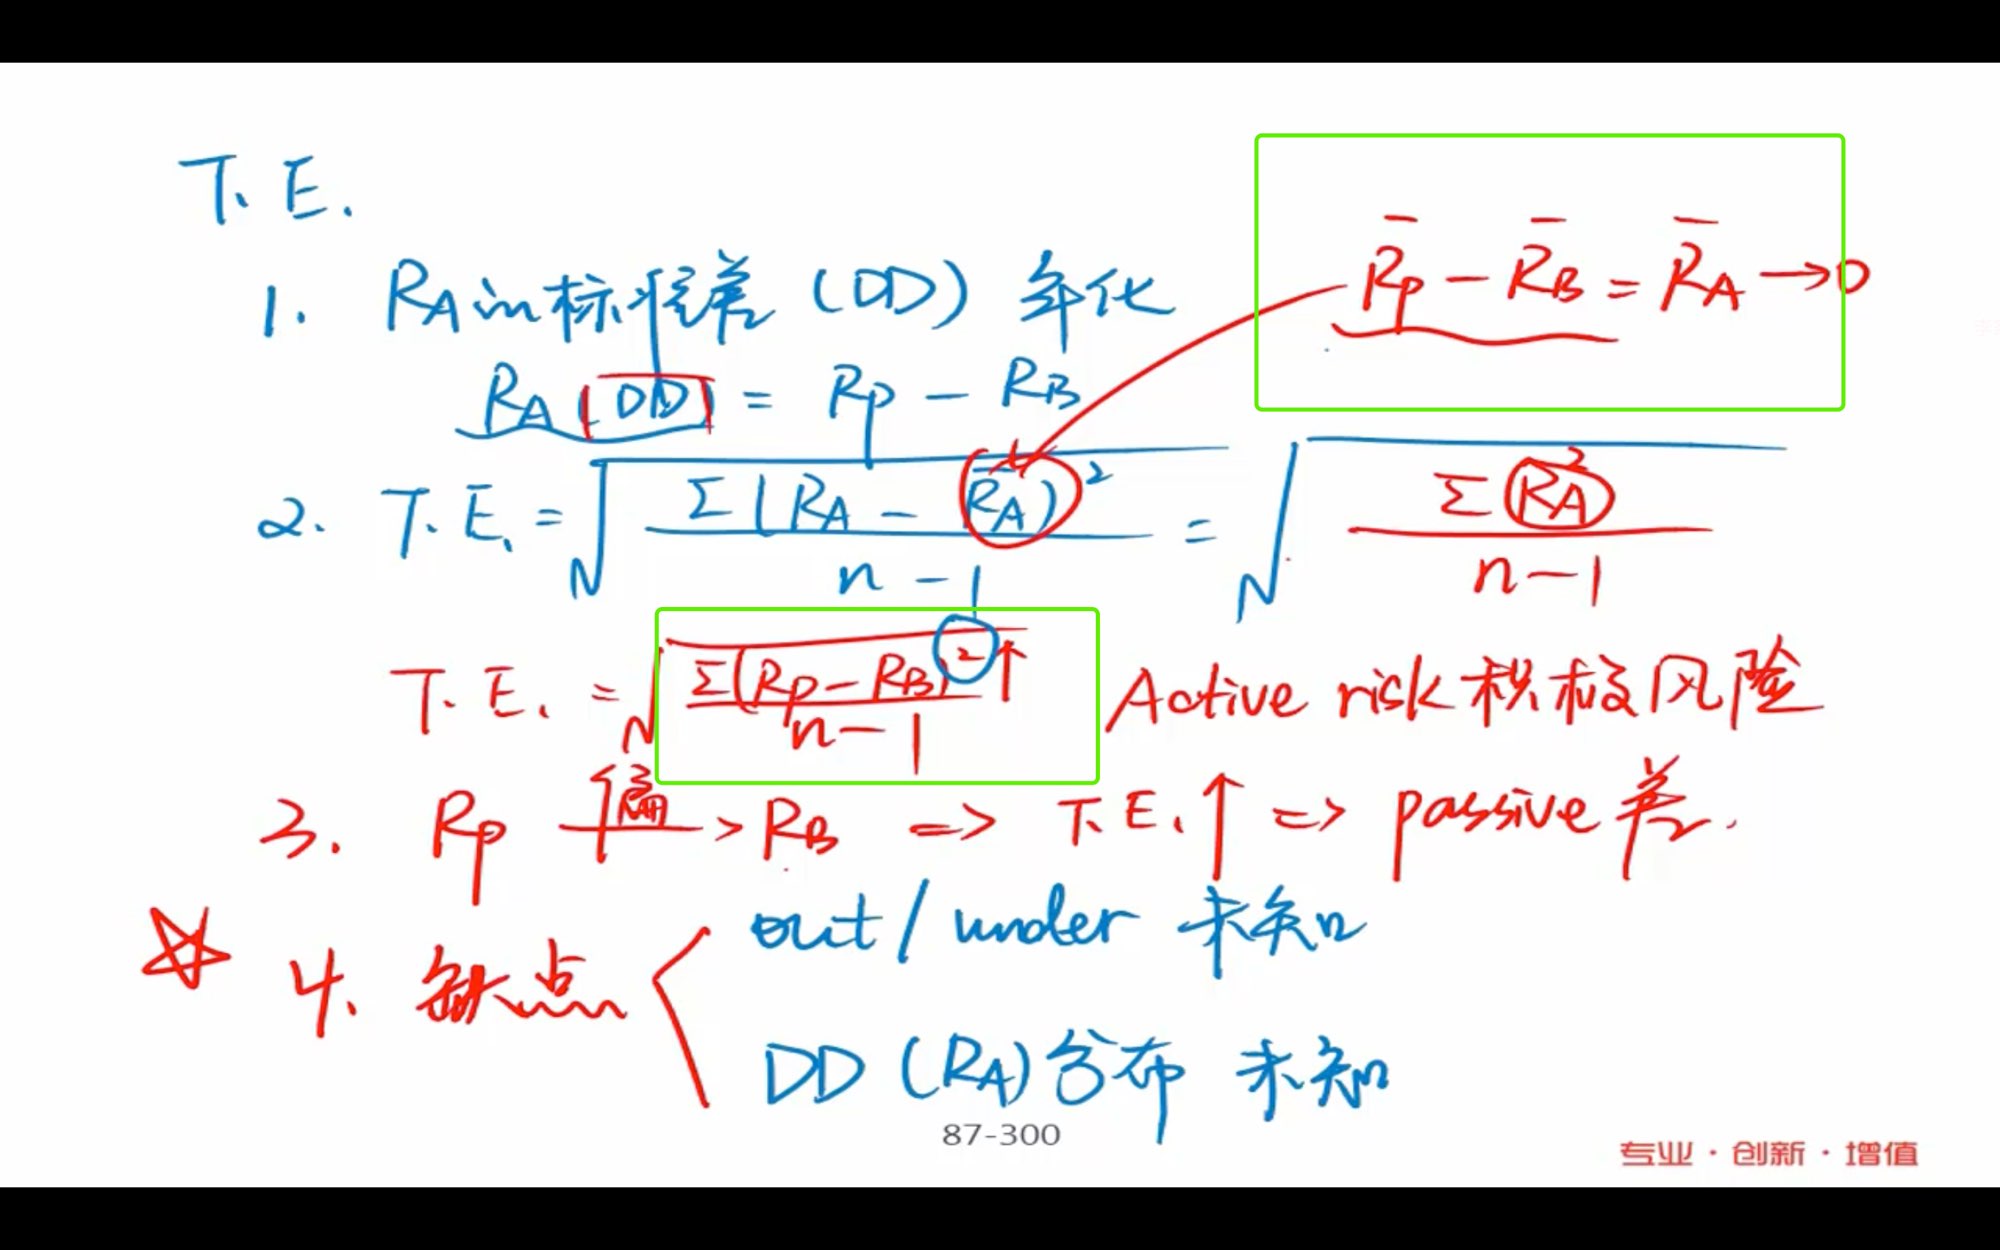 T.E.
R̄p - R̄B = R̄A → 0
1. RA的标准差(DD) 年化
RA(DD) = Rp - RB
2. T.E. = √(Σ(RA - R̄A)² / n-1) = √(ΣRA² / n-1)
T.E. = √(Σ(Rp-RB)²↑ / n-1) Active risk 积极风险
3. Rp 偏→ RB => T.E.↑ => passive 差.
☆ 4. 缺点
out/under 未知
DD (RA) 分布 未知
87-300
专业·创新·增值